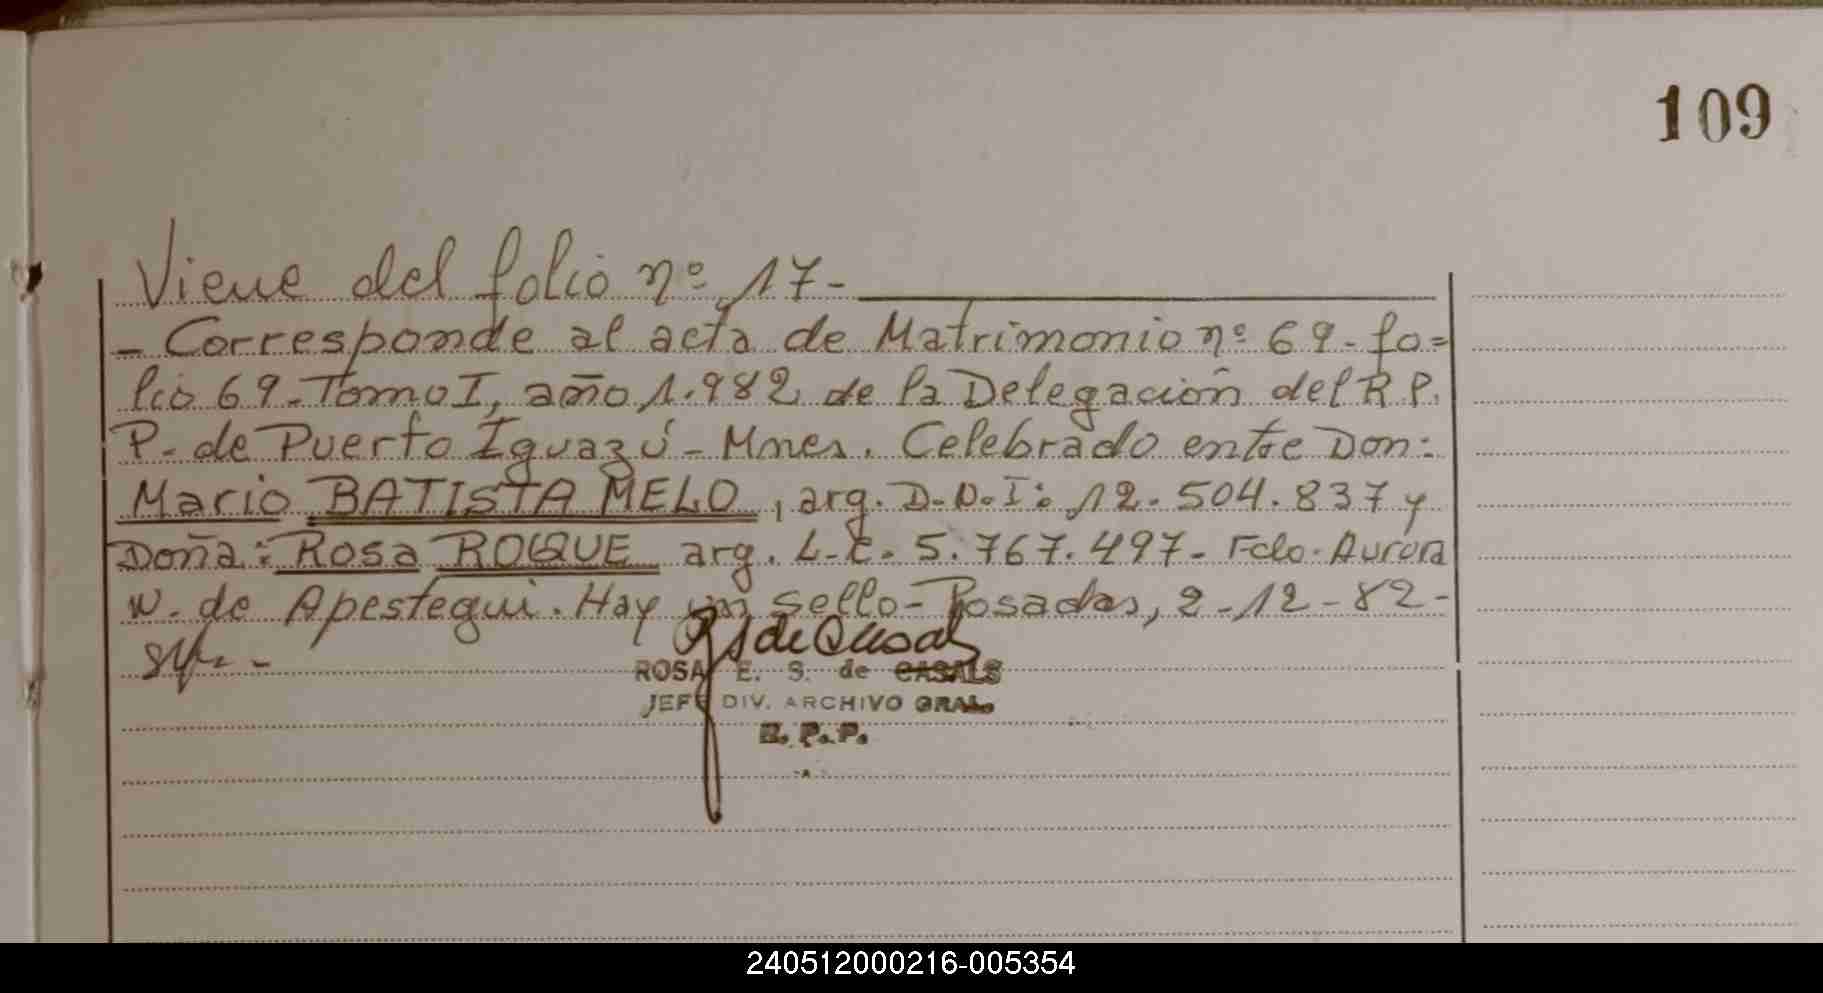 109
Viene del folio nº 17-
- Corresponde al acta de Matrimonio nº 69- fo=
lio 69- Tomo I, año 1.982 de la Delegación del R.P.
P. de Puerto Iguazú - Mnes. Celebrado entre Don:
Mario BATISTA MELO, arg. D.N.I: 12.504.837 y
Doña: Rosa ROQUE arg. L.C. 5.767.497- Fdo. Aurora
N. de Apestegui. Hay un sello- Posadas, 2-12-82-
ROSA E. S. de CASALS
JEFE DIV. ARCHIVO GRAL.
R. P. P.
240512000216-005354